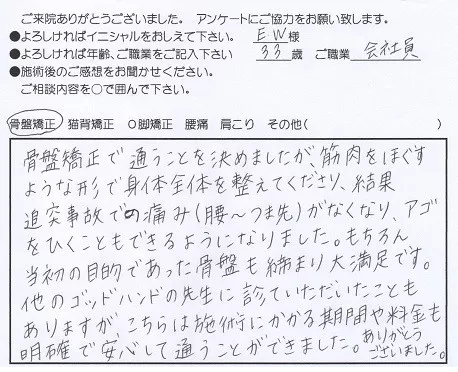 ご来院ありがとうございました。 アンケートにご協力をお願い致します。
●よろしければイニシャルをおしえて下さい。 E W 様
●よろしければ年齢、ご職業をご記入下さい 33 歳 ご職業 会社員
●施術後のご感想をお聞かせください。
ご相談内容を○で囲んで下さい。
骨盤矯正 猫背矯正 O脚矯正 腰痛 肩こり その他( )
骨盤矯正で通うことを決めましたが、筋肉をほぐす
ような形で身体全体を整えてくださり、結果
追突事故での痛み(腰〜つま先)がなくなり、アゴ
をひくこともできるようになりました。もちろん
当初の目的であった骨盤も締まり大満足です。
他のゴッドハンドの先生に診ていただいたことも
ありますが、こちらは施術にかかる期間や料金も
明確で安心して通うことができました。ありがとう
ございました。